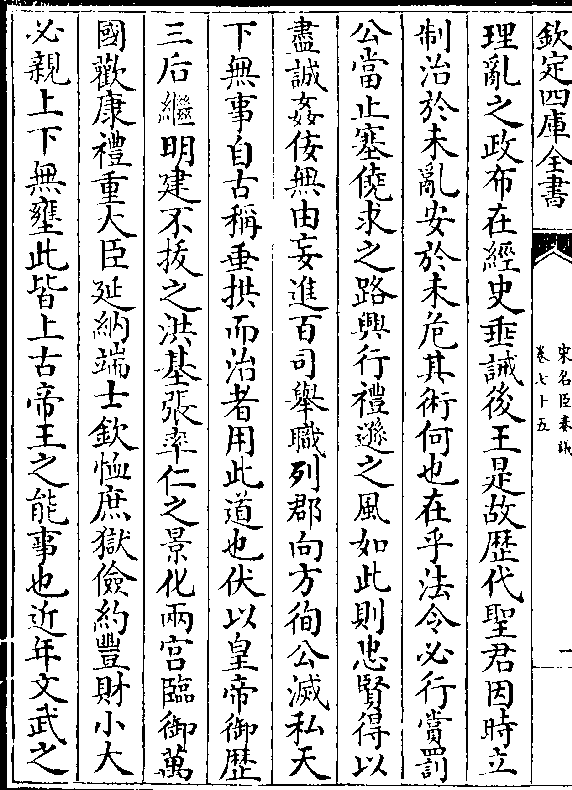 欽定四庫全書
宋名臣奏議
卷七十五
一
理亂之政布在經史垂誡後王是故歷代聖君因時立
制治於未亂安於未危其術何也在乎法令必行賞罰
公當止塞僥求之路興行禮遜之風如此則忠賢得以
盡誠姦佞無由妄進百司舉職列郡向方徇公滅私天
下無事自古稱垂拱而治者用此道也伏以皇帝御歷
三后繼明建不拔之洪基張率仁之景化兩宮臨御萬
國歡康禮重大臣延納端士欽恤庶獄儉約豐財小大
必親上下無壅此皆上古帝王之能事也近年文武之